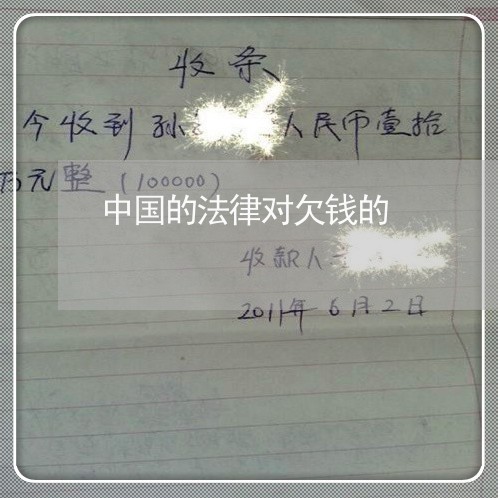 收条
今收到孙 人民币壹拾
万元整(100000)
中国的法律对欠钱的
收款人
2011年6月2日